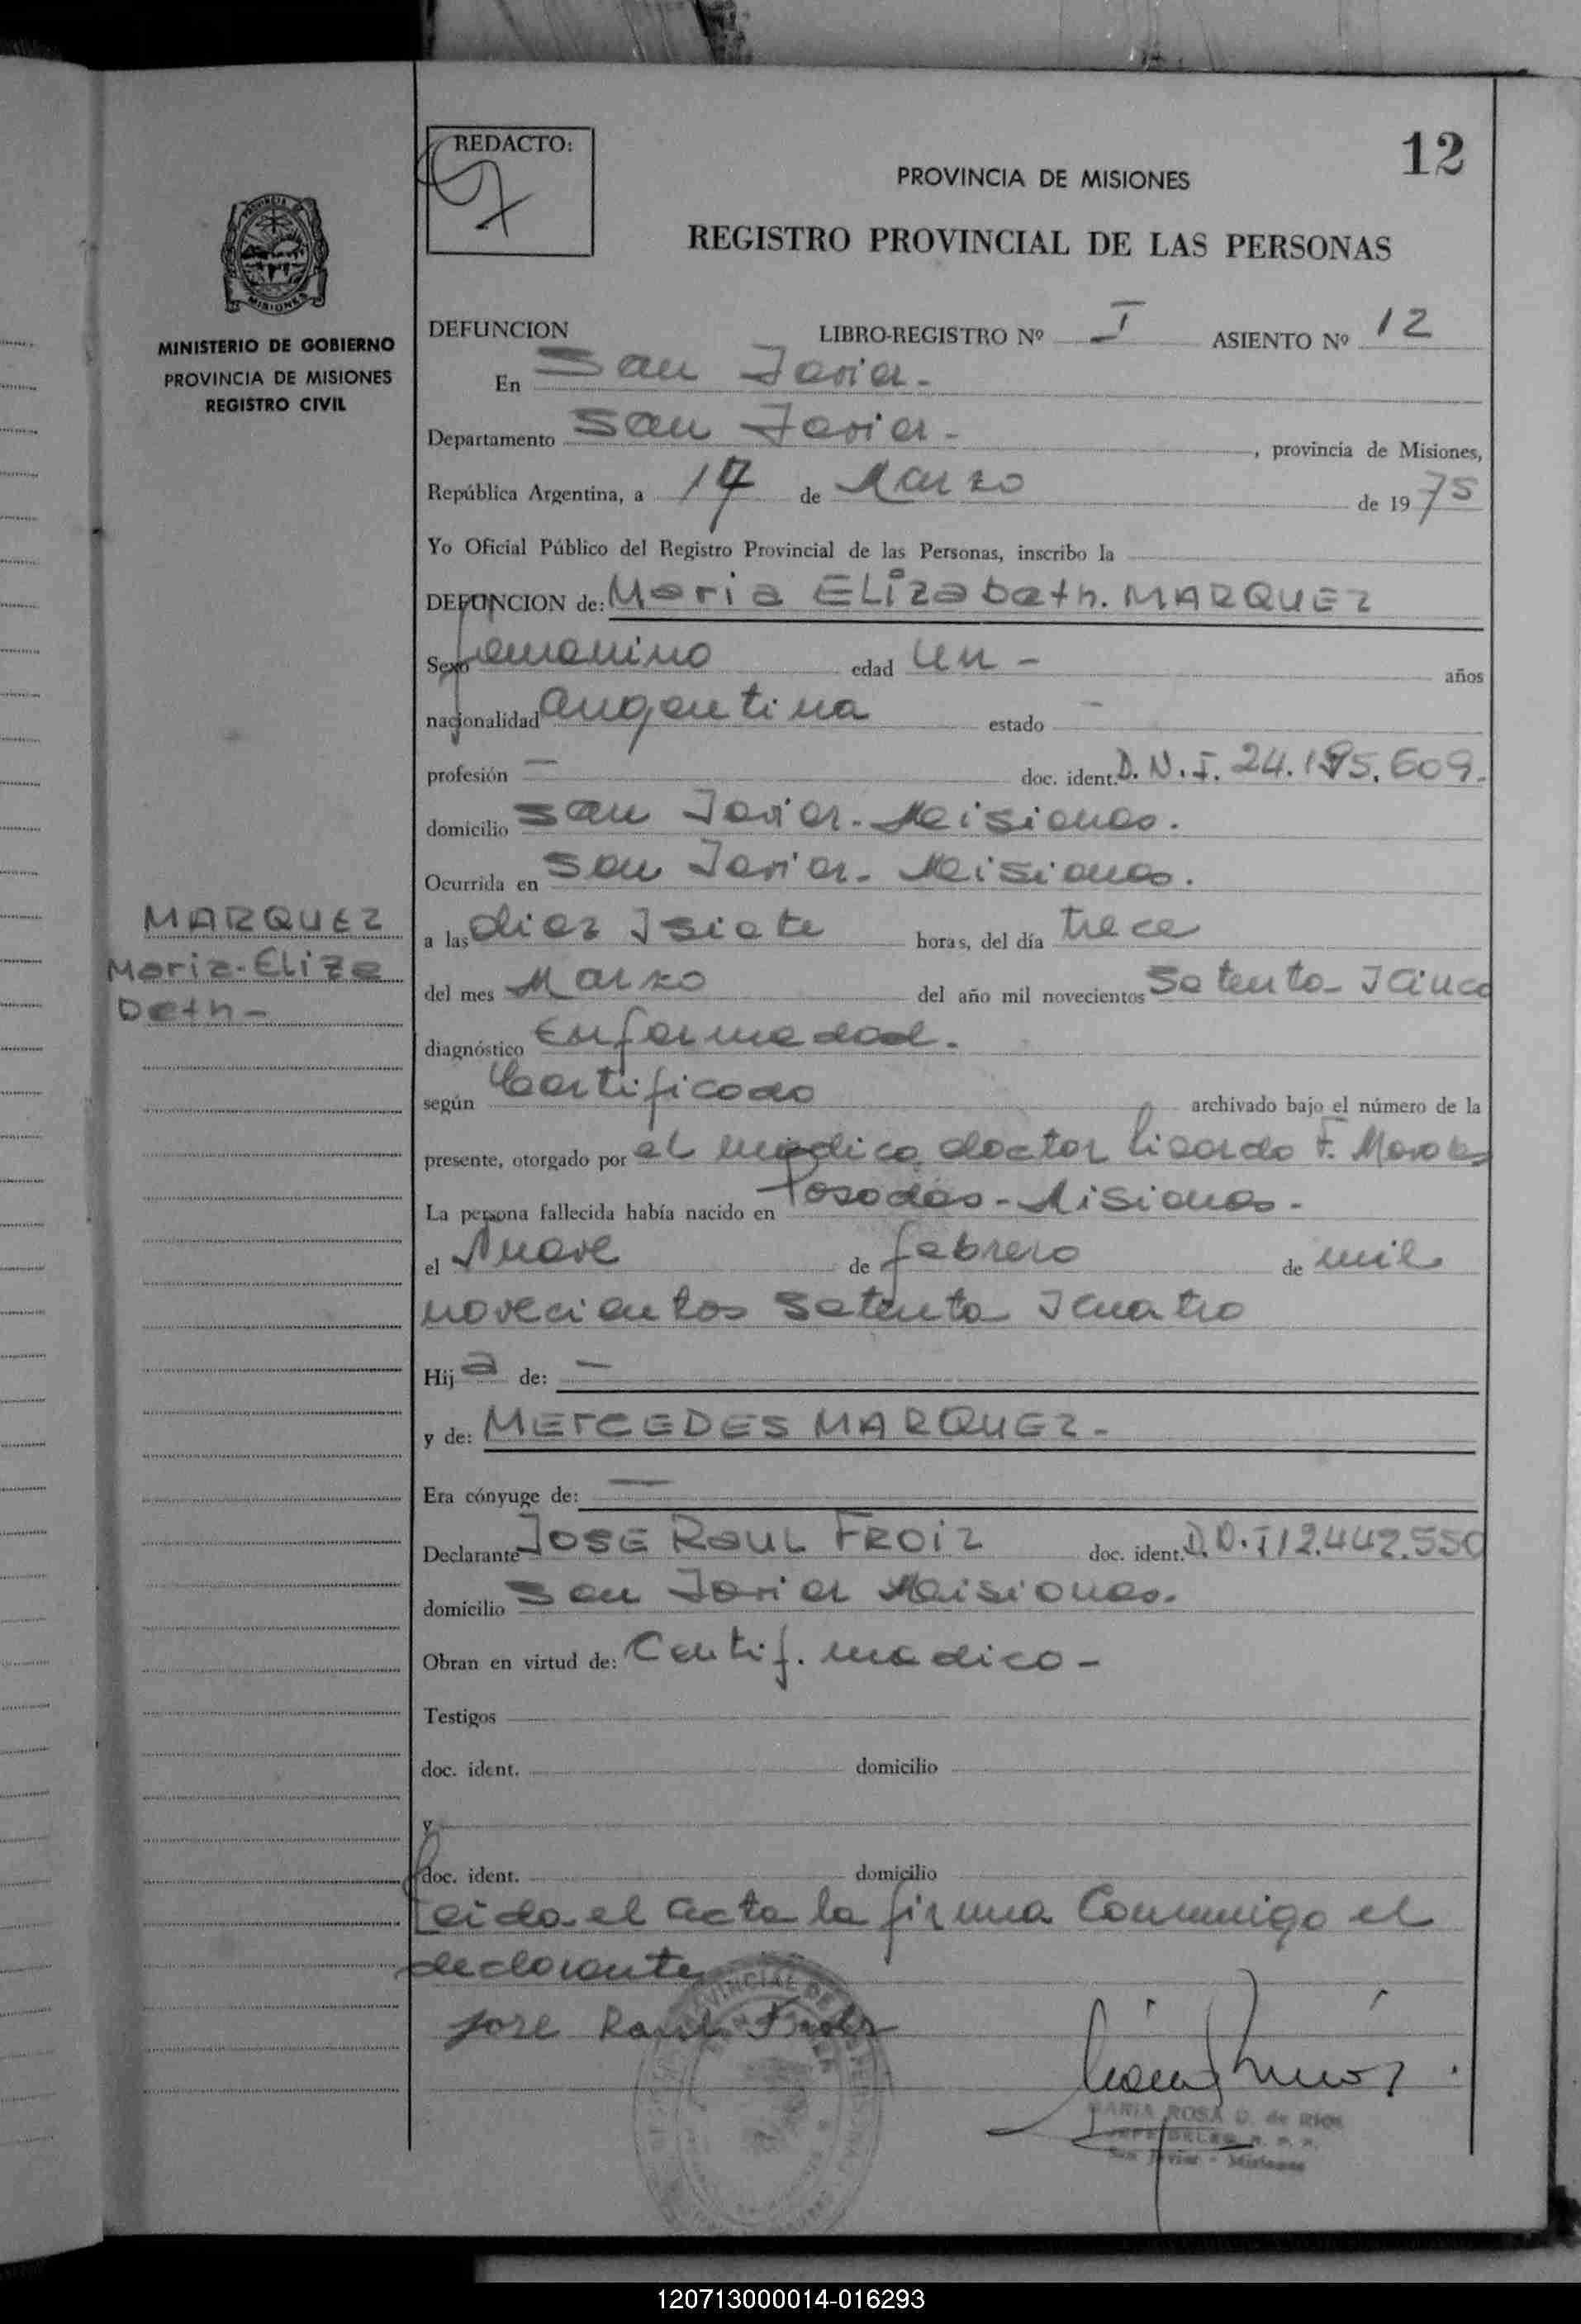 12
REDACTO:
PROVINCIA DE MISIONES
REGISTRO PROVINCIAL DE LAS PERSONAS
MINISTERIO DE GOBIERNO
PROVINCIA DE MISIONES
REGISTRO CIVIL
DEFUNCION LIBRO-REGISTRO Nº I ASIENTO Nº 12
En San Javier.-
Departamento San Javier - , provincia de Misiones,
República Argentina, a 17 de Marzo de 1975
Yo Oficial Público del Registro Provincial de las Personas, inscribo la
DEFUNCION de: Maria ELizabeth. MARQUEZ
Sexo femenino edad un - años
nacionalidad argentina estado -
profesión - doc. ident. D.N.I. 24.195.609.
domicilio San Javier - Misiones.
Ocurrida en San Javier - Misiones.
a las diez y siete horas, del día trece
del mes Marzo del año mil novecientos setenta y cinco
diagnóstico Enfermedad.
según Certificado archivado bajo el número de la
presente, otorgado por el medico doctor Lisardo F. Morales
La persona fallecida había nacido en Posadas - Misiones -
el Nueve de febrero de mil
novecientos setenta y cuatro
MARQUEZ
Maria-Eliza
beth-
Hija de: -
y de: MERCEDES MARQUEZ -
Era cónyuge de: -
Declarante JOSE RAUL FROIZ doc. ident. D.N.I 12.442.550
domicilio San Javier Misiones.
Obran en virtud de: Certif. medico -
Testigos
doc. ident. domicilio
y
doc. ident. domicilio
Leida el acta la firma conmigo el
declarante
Jose Raul Froiz
MARIA ROSA D. de RIOS
JEFE DELEG. R. P. P.
San Javier - Misiones
120713000014-016293